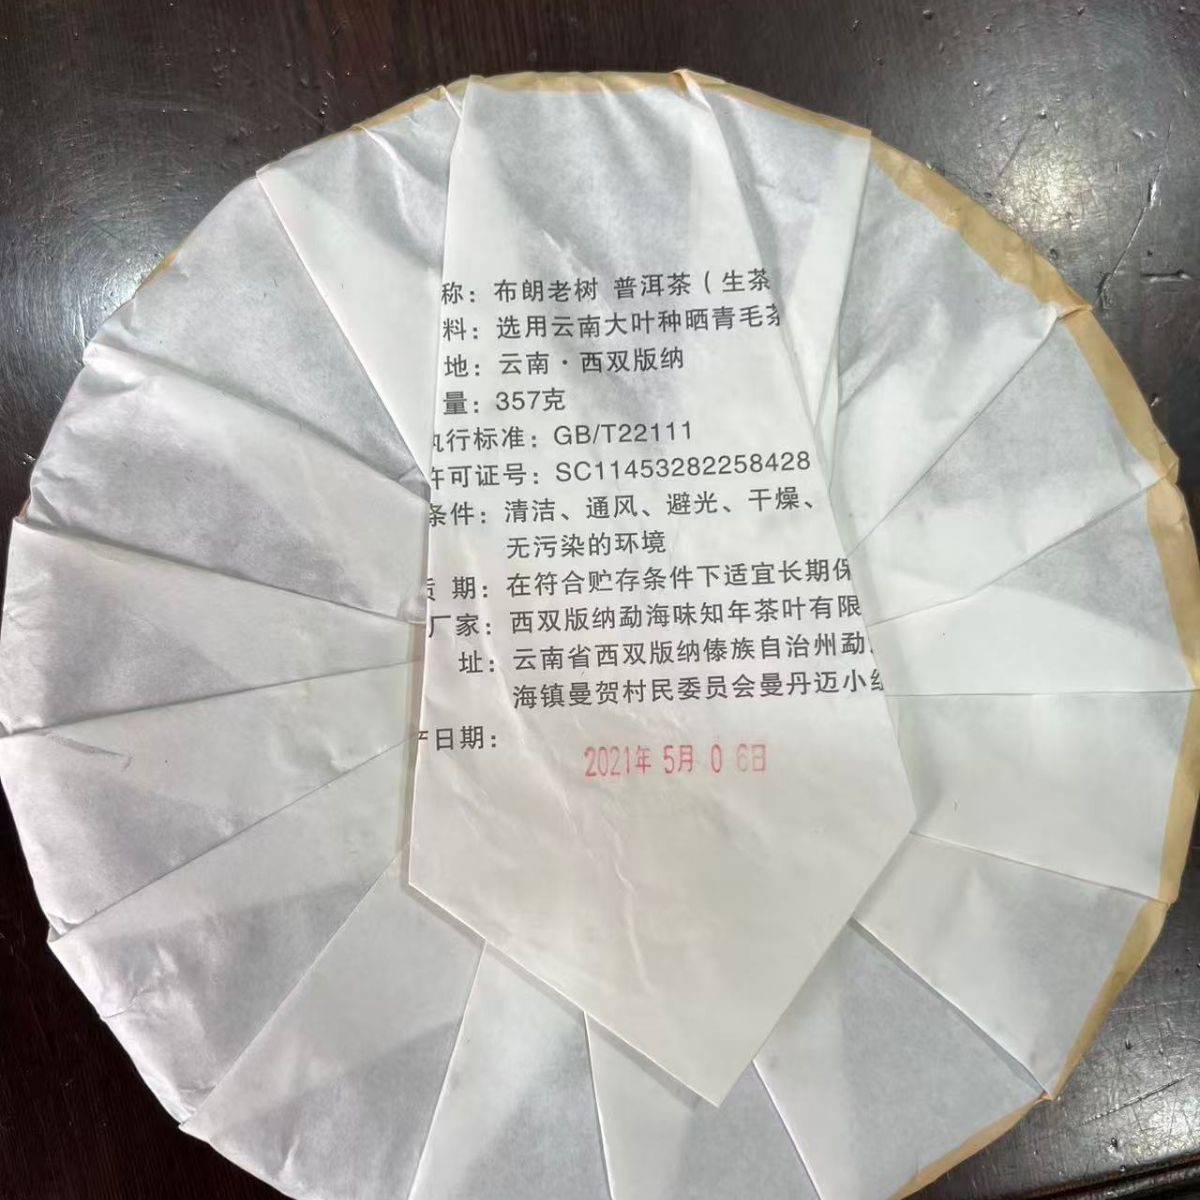 称：布朗老树 普洱茶（生茶
料：选用云南大叶种晒青毛茶
地：云南·西双版纳
量：357克
执行标准：GB/T22111
许可证号：SC11453282258428
条件：清洁、通风、避光、干燥、
无污染的环境
质 期：在符合贮存条件下适宜长期保
厂家：西双版纳勐海味知年茶叶有限
址：云南省西双版纳傣族自治州勐
海镇曼贺村民委员会曼丹迈小组
产日期：
2021年 5月 0 6日